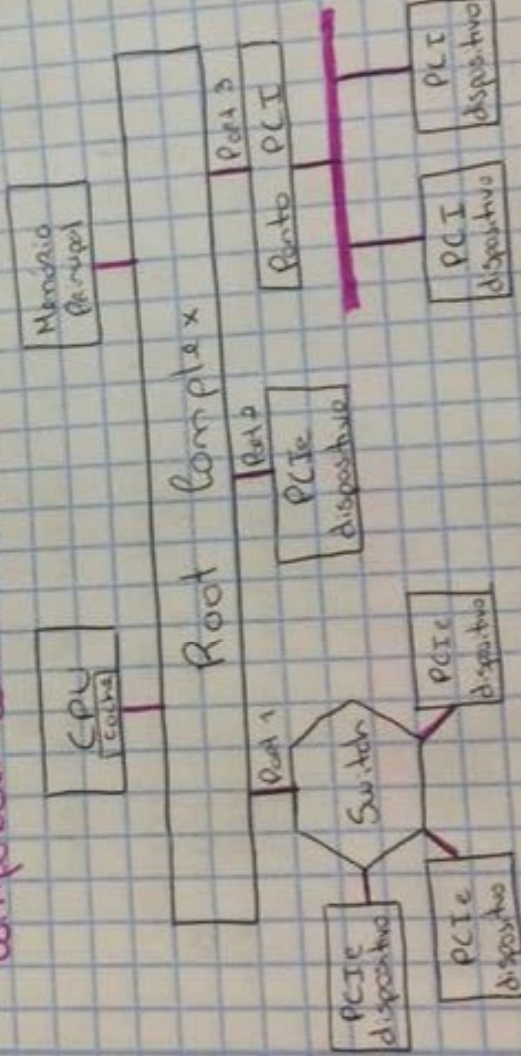 CPU
cache
Memória
Principal
Root Complex
Port 1
Port 2
Port 3
Switch
PCIe
dispositivo
Ponto PCI
PCIe
dispositivo
PCIe
dispositivo
PCIe
dispositivo
PCI
dispositivo
PCI
dispositivo